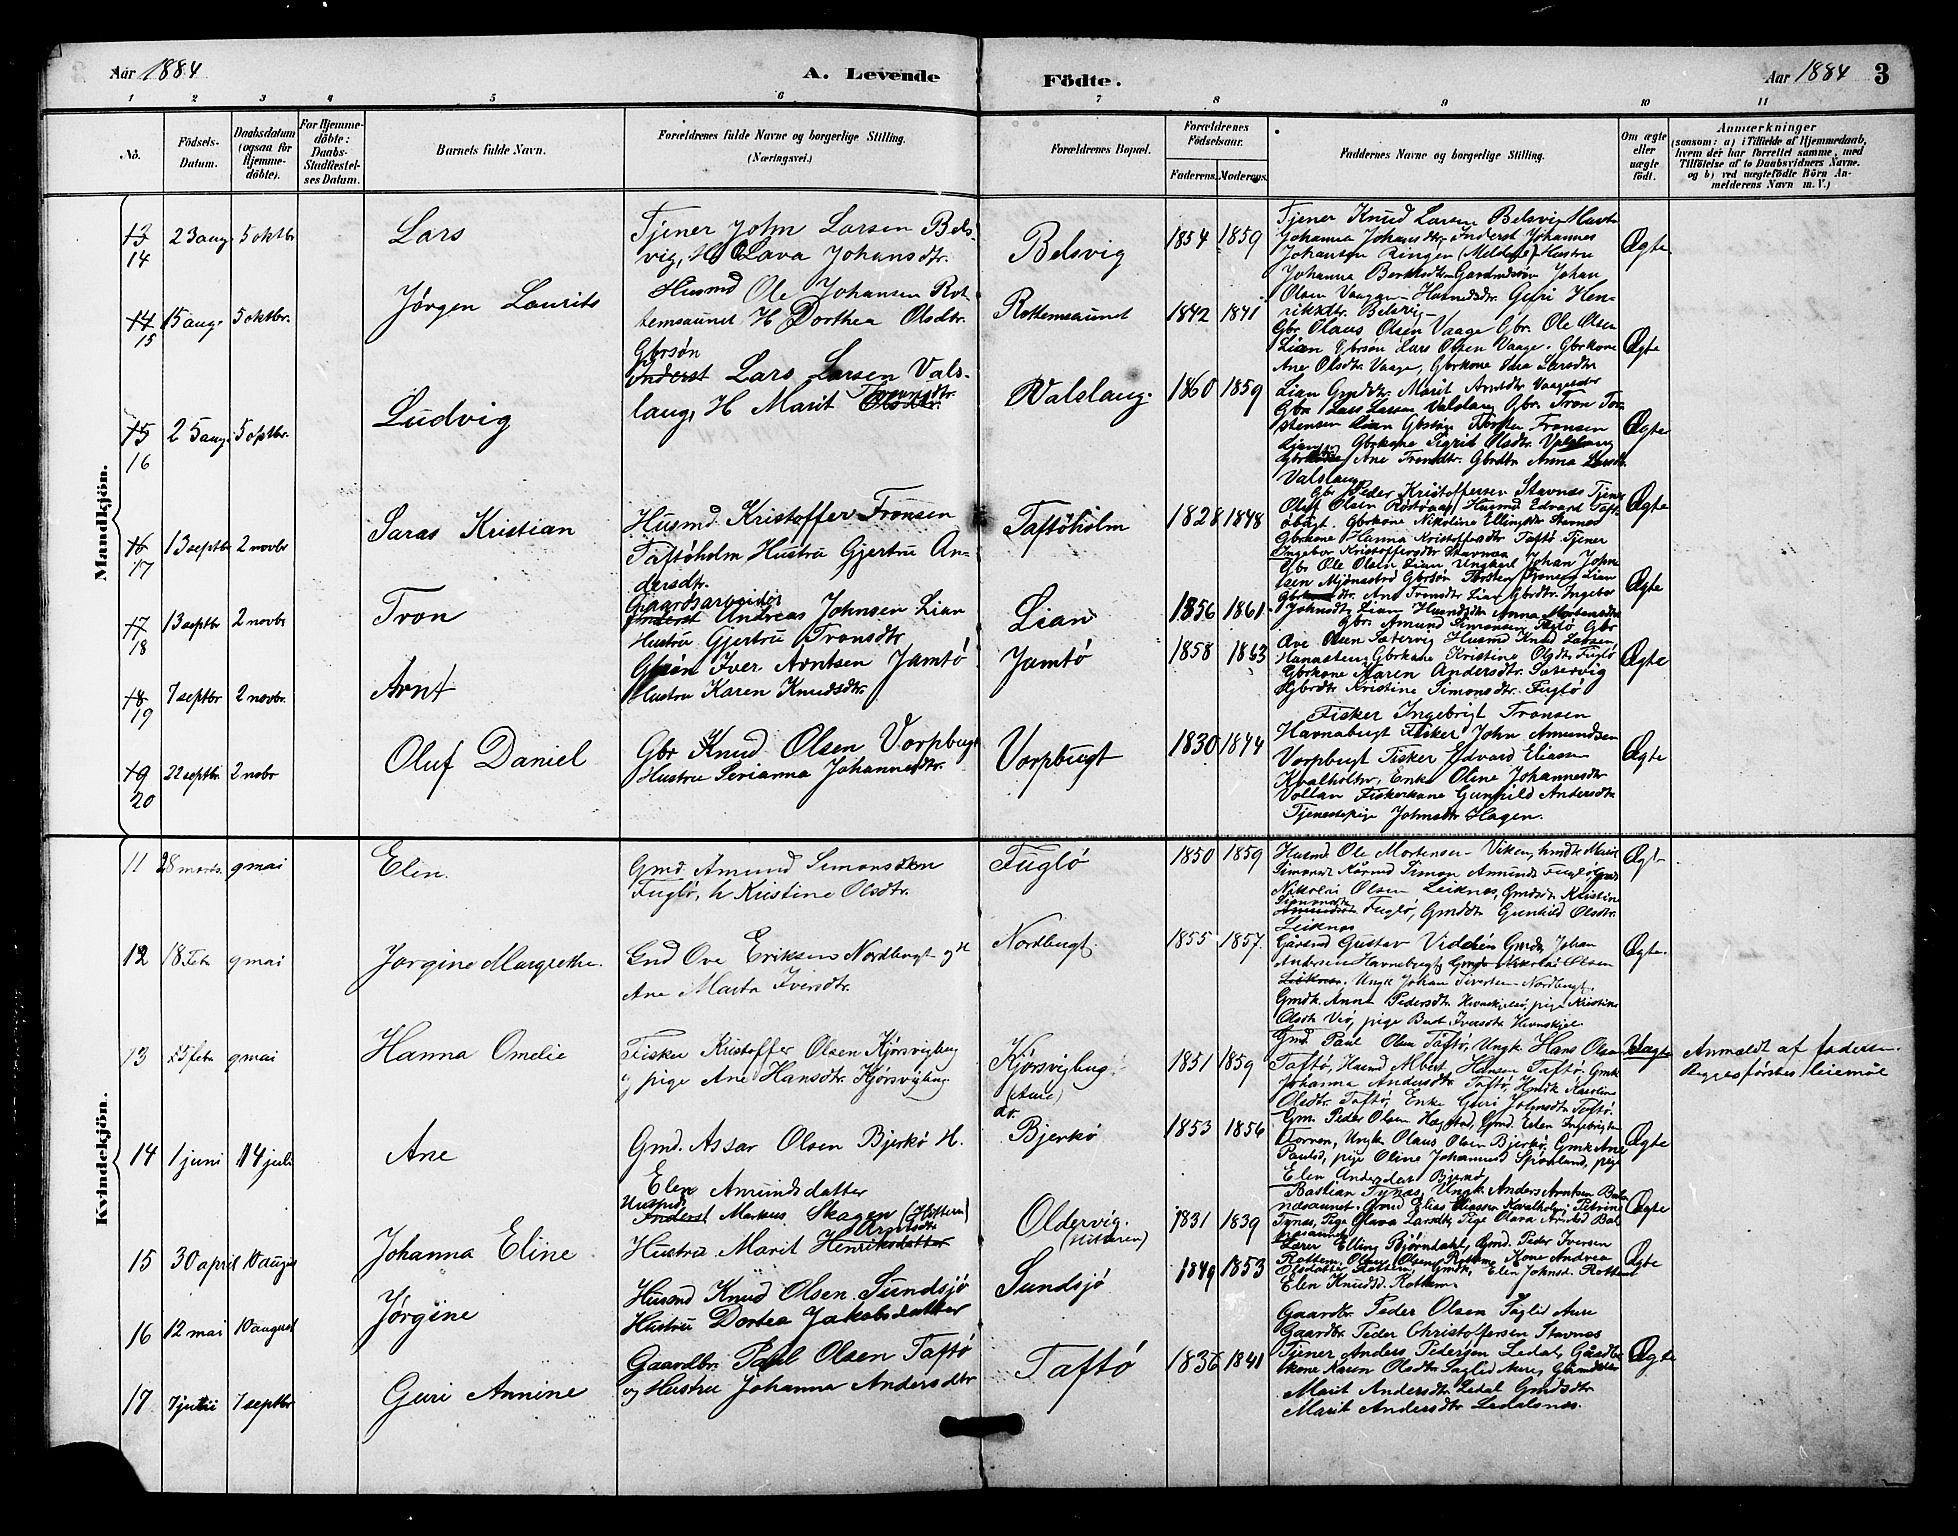 Aar 1884
A. Levende
Födte.
Aar 1884
3
1 2 3 4 5 6 7 8 9 10 11
No.
Födsels-Datum.
Daabsdatum (ogsaa for Hjemme-döbte).
For Hjemme-döbte: Daabs-Stadfæstel-ses Datum.
Barnets fulde Navn.
Forældrenes fulde Navne og borgerlige Stilling.
(Næringsvei.)
Forældrenes Bopæl.
Forældrenes Födselsaar.
Faderens. Moderens.
Faddernes Navne og borgerlige Stilling.
Om ægte eller uægte födt.
Anmærkninger
(saasom: a) i Tilfælde af Hjemmedaab,
hvem der har forrettet samme, med
Tilföielse af to Daabsvidners Navne.
og b) ved uægtefödte Börn An-
melderens Navn m. V.)
Mandkjön.
13 14 23 aug. 5 oktbr Lars
Tjener John Larsen Bels-
vig, H Olava Johansdtr.
Belsvig 1854 1859
Tjener Knud Larsen Belsvig
Johanna Johansdtr. Inderst Johannes
Johansen Ringen (Meldal) Hustru
Ægte
14 15 15 aug. 5 oktbr. Jørgen Laurits
Husmd Ole Johansen Rot
temsaunet H Dorthea Olsdtr.
Rottemsaunet 1842 1841
Olsen Vaagan Husmdsdtr. Guri Hen-
rikkdtr. Belsvig
Gbr. Olaus Olsen Vaage Gbr. Ole Olsen
Lian Gbrsön Lars Olsen Vaage. Gbrkone
Ane Olsdtr Vaage, Gbrkone Ane Larsdtr
Ægte
15 16 25 aug. 5 oktbr. Ludvig
Gbrsön
Inderst Lars Larsen Vals-
lang, H Marit Olsdtr. Tronsdtr.
Valslang. 1860 1859
Lian Gmdsdtr. Marit Arntsdtr
Gbr Lars Larsen Valslang Gbr. Tron Tor-
stensen Lian Gbrsön Torsten Tronsen
Lian Gbrkone Sigrid Olsdtr. Valslang
Ane Tronsdtr. Gbrdtr Anna Larsdtr.
Valslang
Ægte
16 17 13 septbr 2 novbr Saras Kristian
Husmd. Kristoffer Tronsen
Taftöholm Hustru Gjertru An-
dersdtr.
Taftöholm 1828 1848
Gbr Peder Kristoffersen Stavnæs Tjener
Oluf Olsen Husmd Edvard Taft-
öbugt. Gbrkone Nikoline Ellingsdtr Stavnes
Gbrkone Hanna Kristoffersdtr Taftö Tjener
Ingebor Kristoffersdtr Stavnæs
Ægte
17 18 13 septbr 2 novbr Tron
Gaardsarbeider
Inderst Andreas Johnsen Lian
Hustru Gjertru Tronsdtr
Lian 1856 1861
Gbr Ole Olsen Lian Ungkarl Johan John-
sen Gbrsön Torsten Tronsen Lian
Ane Tronsdtr Lian Gbrdtr. Ingebor
Johnsdtr Lian Husmdsdtr Anna Mortensdtr
Ægte
18 19 7 septbr 2 novbr. Arnt
Gbrsön Iver Arntsen Jamtö
Hustru Karen Knudsdtr.
Jamtö 1858 1863
Gbr. Amund Simonsen Fuglö Gbr
Ove Olsen Sætervig Husmd Knud Larsen
Gbrkone Kristine Olsdtr Fuglö
Gbrkone Maren Andersdtr. Sætervig
Gbrdtr Kristine Simonsdtr. Fuglö
Ægte
19 20 22 septbr. 2 nobr Oluf Daniel
Gbr Knud Olsen Vorpbugt
Hustru Serianna Johannesdtr.
Vorpbugt 1830 1844
Fisker Ingebrigt Tronsen
Havnabugt Fisker John Amundsen
Vorpbugt Fisker Edvard Eliassen
Kvalholm, Enke Oline Johannesdtr
Vollan Fiskerkone Gunhild Andersdtr
Tjenestepige Johnsdtr Hagen.
Ægte
Kvindekjön.
11 28 marts. 9 mai Elen.
Gmd. Amund Simonsen
Fuglö, h Kristine Olsdtr.
Fuglö 1850 1859
Husmd Ole Mortensen Viken,
Simon Amunds Fuglö
Nikolai Olsen Leiknes, Gmdsdt Kristine
Simonsdtr
Fuglö, Gmdsdt Gunhild Olsdtr.
Leiknes
Ægt
12 18 Febr 9 mai Jørgine Margrethe.
Gmd Ove Eriksen Nordbugt og H
Ane Marta Iversdtr.
Nordbugt. 1855 1857.
Gårbmd Gustav Johan
Andersen Havnebugt, Gmd. Nikolai Olsen
Leiknes. Ungk Johan Sivertsen Nordbugt.
Gmdk. Anne Pedersdtr. pige Kristine
Olsdtr pige Beret Iversdtr
Ægte.
13 25 febr 9 mai Hanna Omelie
Fisker Kristoffer Olsen Kjørsvigbug
og pige Ane Hansdtr. Kjørsvigbug
Kjørsvigbug.
(Aure)
1851 1859
Gmd. Paul Olsen Taftö, Ungk. Hans Olsen
Taftö, Husmd Albert Hansen Taftö, Gmk
Johanna Andersdtr Taftö, Hmdk Karoline
Olsdtr. Taftö, Enke Guri Johnsdtr Taftö.
Uægte
Anmeldt af faderen.
Begges förstes leiermål
14 1 juni 14 juli Ane
Gmd. Assar Olsen Bjerkö H.
Elen Amundsdatter
do.
Bjerkö 1853 1856
Gm. Peder Olsen Hagstad, Gmd. Esten Ingebrigtsen
Ungk Olaus Olsen Bjerkö, Gmk Ane
Paulsd, pige Oline Johannesd pige
Elen Andersdatr Bjerkö
Ægte
15 30 april 10 august Johanna Eline
Husmd
Inderst Markus Skagen (Hitteren)
Hustru Marit Henriksdatter Arntsdtr
Oldervig.
(Hitteren)
1831 1839
Bastian Tynæs, Ungk. Anders Arntsen Bals-
næsaunet, Gmd Elias Eliassen Kvalholm, Petrine
Tynæs, Pige Olava Larsdtr, Pige Olava Arntsd Bal-
snesaunet
Ægte
16 12 mai 10 august Jørgine
Husmd Knud Olsen Sundsjö
Hustru Dortea Jakobsdatter
Sundsjö 1849 1853
Lærer Elling Bjørndahl, Gmd. Peder Iversen
Rottem, Olaus Olsen Rottem, Kone Andrea
Olsdatter Rottem, Gmdk. Elen Johnsd. Rottem
Elen Knudsd. Rottem
Ægte
17 7 juli 7 septbr Guri Annine
Gaardbr. Paul Olsen Taftö
og Hustru Johanna Andersdtr
Taftö 1836 1841
Gaardbr. Peder Olsen Saglid Aure
Gaardbr. Peder Christoffersen Stavnæs
Tjener Anders Pedersen Ledal, Gårdbr
kone Karen Olsdtr Saglid Aure,
Marit Andersdtr Ledal Gmdsdtr
Marit Andersdtr Ledalsnæs.
Ægte